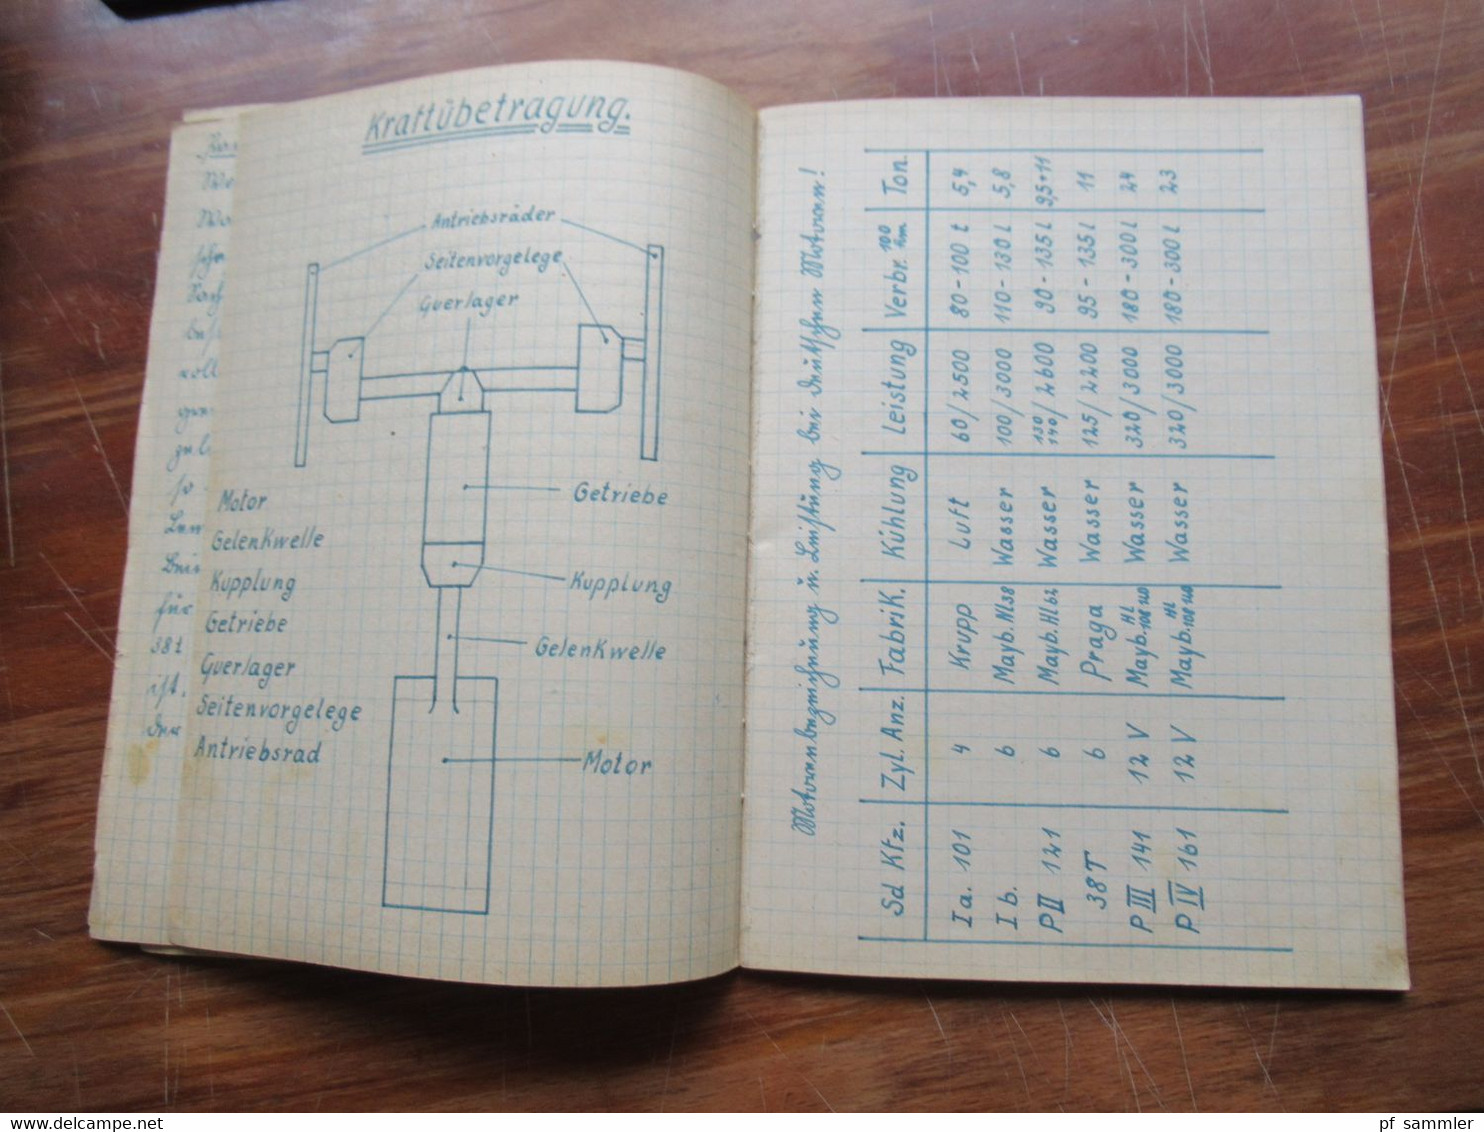 Kraftübetragung.
Antriebsräder
Seitenvorgelege
Querlager
Getriebe
Kupplung
Gelenkwelle
Motor
Motor
Gelenkwelle
Kupplung
Getriebe
Querlager
Seitenvorgelege
Antriebsrad
für
38t
ist.
der
Motorenbezeichnung u. Leistung bei deutschen Motoren!
Sd Kfz. Zyl. Anz. Fabrik. Kühlung Leistung Verbr. 100 km Ton.
I a. 101 4 Krupp Luft 60/2500 80-100 l 5,4
I b. 6 Mayb. Hl38 Wasser 100/3000 110-130 l 5,8
P II 121 6 Mayb. HL62 Wasser 130 140 / 2600 90-135 l 9,5+11
38T 6 Praga Wasser 125/2200 95-135 l 11
P III 141 12 V Mayb. HL 108 120 Wasser 320/3000 180-300 l 24
P IV 161 12 V Mayb. HL 108 120 Wasser 320/3000 180-300 l 23
www.delcampe.net
pf_sammler